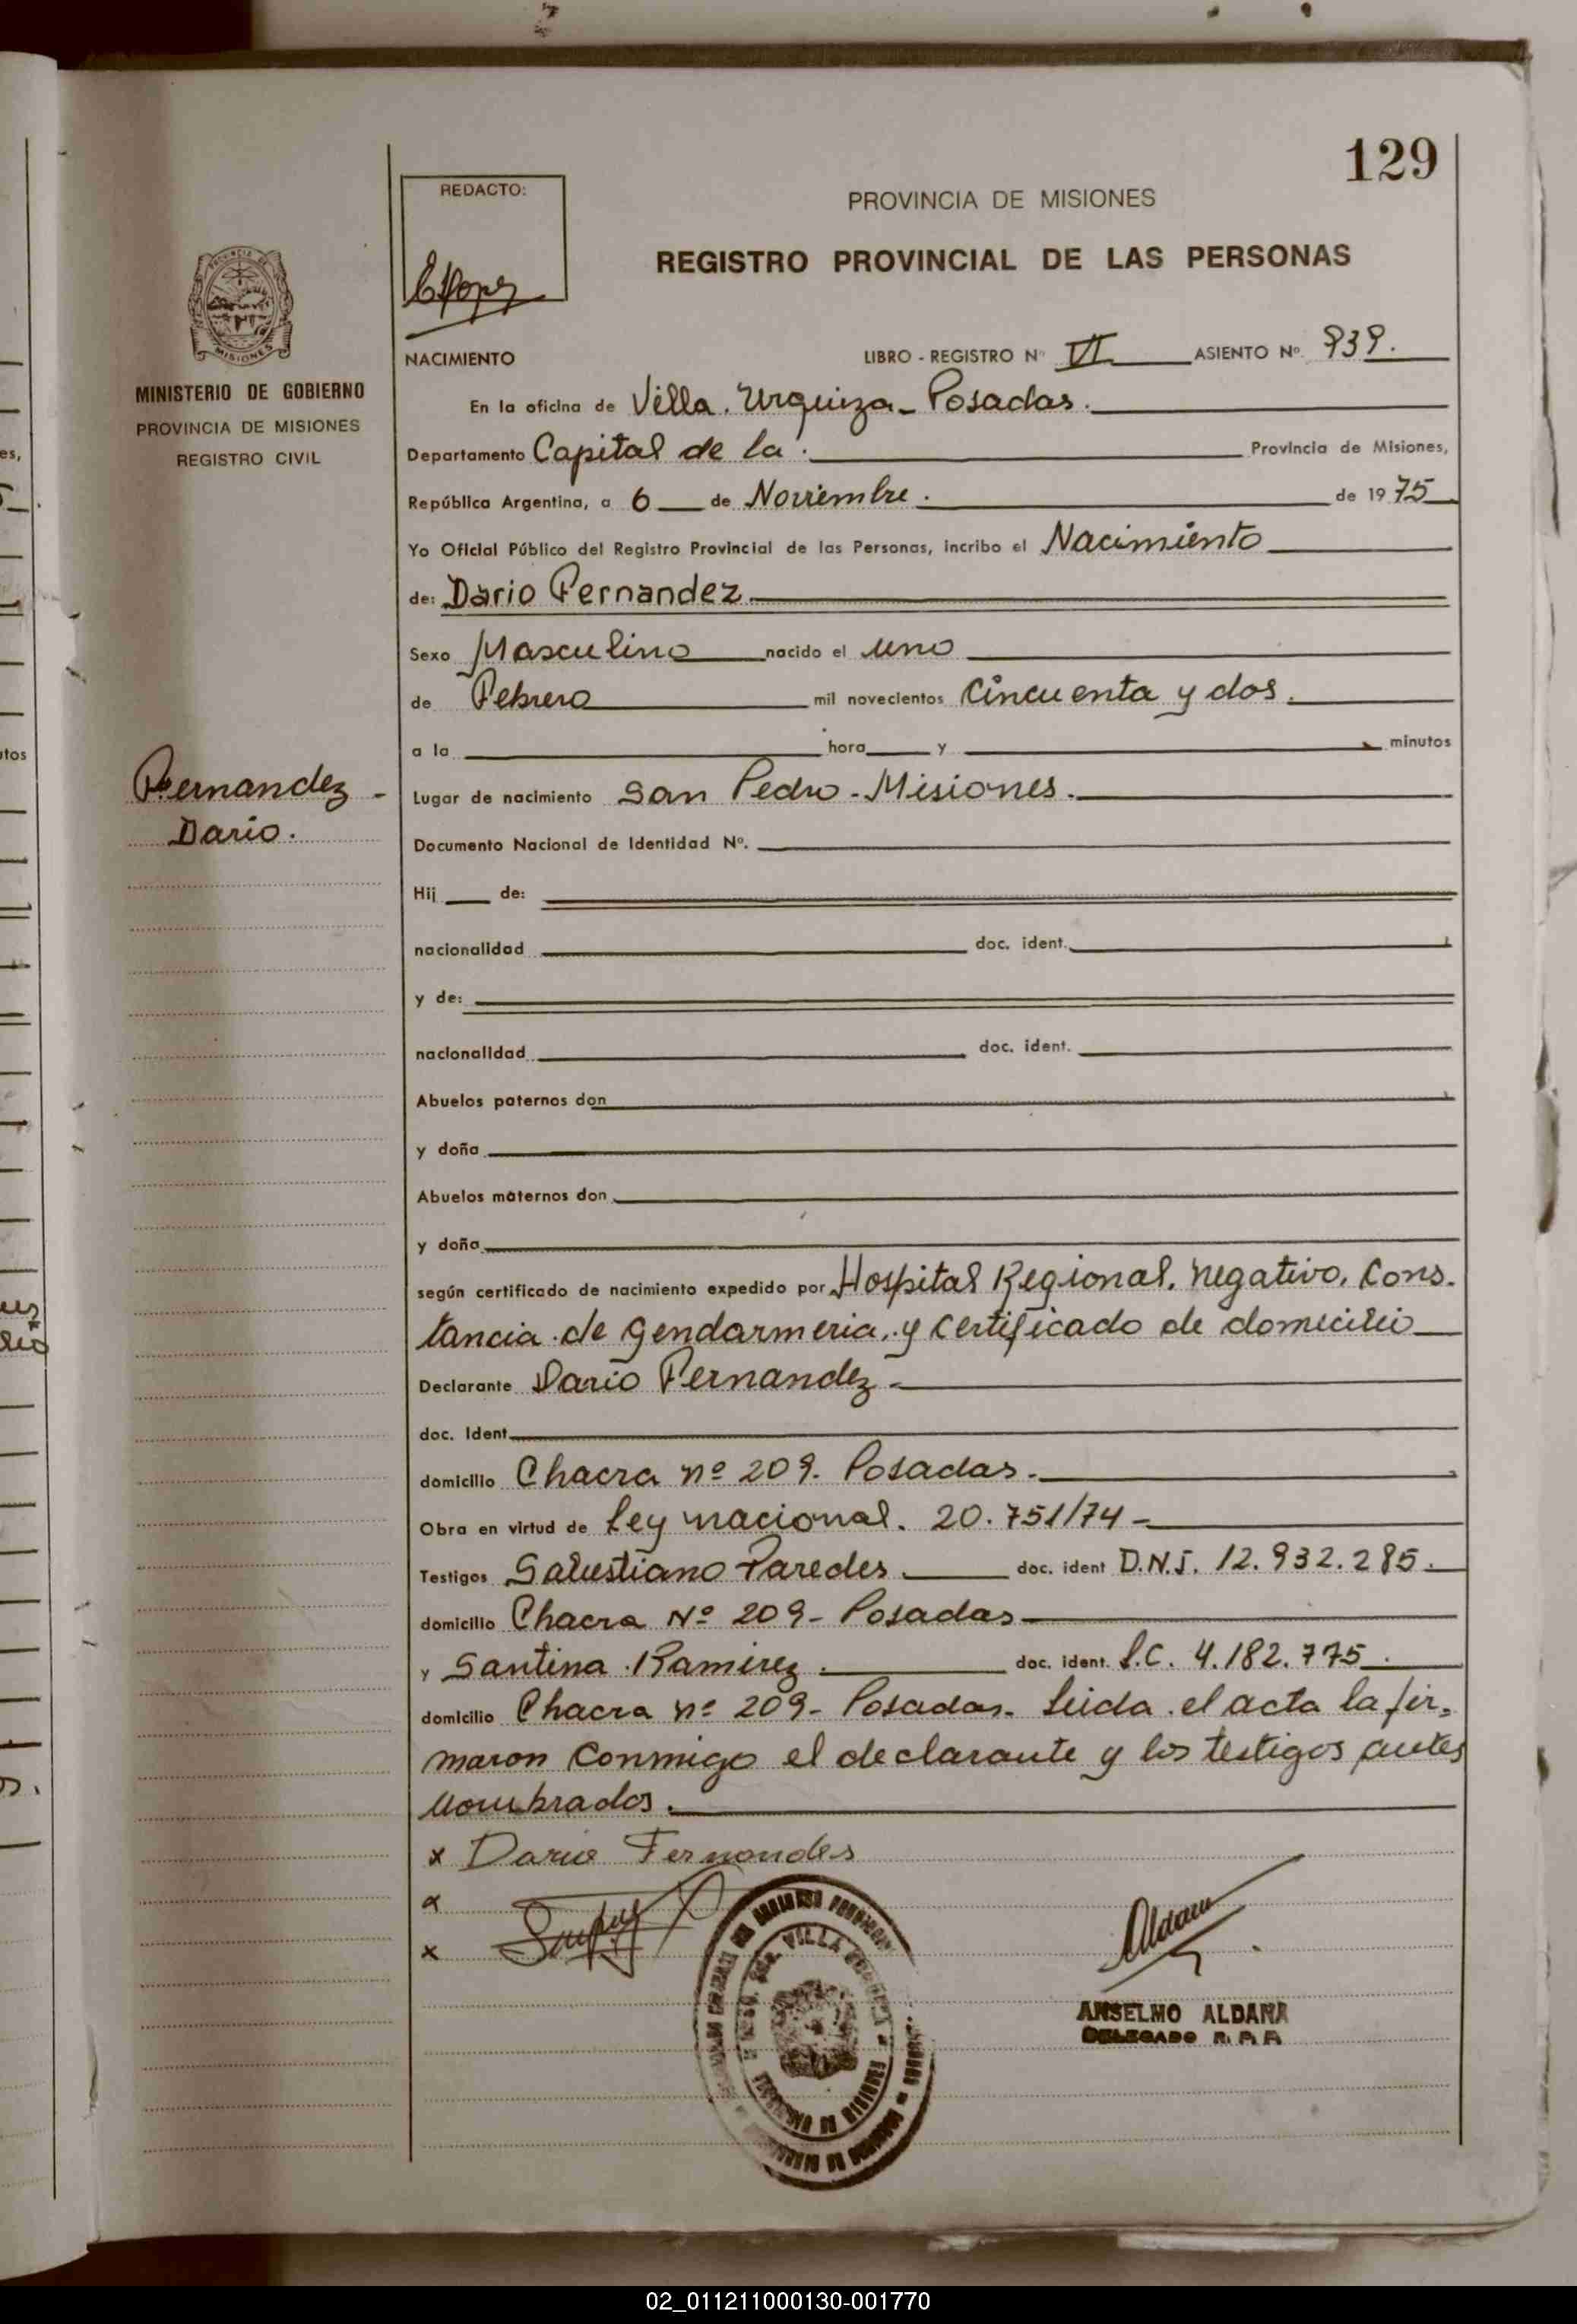 129
REDACTO:
PROVINCIA DE MISIONES
REGISTRO PROVINCIAL DE LAS PERSONAS
MISIONES
MINISTERIO DE GOBIERNO
PROVINCIA DE MISIONES
REGISTRO CIVIL
NACIMIENTO LIBRO - REGISTRO Nº VI ASIENTO Nº 939.
En la oficina de Villa. Urquiza - Posadas.
Departamento Capital de la. Provincia de Misiones,
República Argentina, a 6 de Noviembre. de 1975
Yo Oficial Público del Registro Provincial de las Personas, incribo el Nacimiento
de: Dario Fernandez
Sexo Masculino nacido el uno
de Febrero mil novecientos cincuenta y dos.
a la hora y minutos
Fernandez -
Dario.
Lugar de nacimiento San Pedro - Misiones.
Documento Nacional de Identidad Nº.
Hij de:
nacionalidad doc. ident.
y de:
nacionalidad doc. ident.
Abuelos paternos don
y doña
Abuelos maternos don
y doña
según certificado de nacimiento expedido por Hospital Regional, negativo, Cons-
tancia de gendarmeria, y certificado de domicilio
Declarante Dario Fernandez -
doc. Ident.
domicilio Chacra nº 209. Posadas.
Obra en virtud de Ley nacional. 20.751/74 -
Testigos Salustiano Paredes. doc. ident D.N.I. 12.932.285.
domicilio Chacra Nº 209 - Posadas
y Santina Ramirez. doc. ident. L.C. 4.182.775.
domicilio Chacra nº 209 - Posadas. Leida el acta la fir-
maron conmigo el declarante y los testigos antes
nombrados.
x Dario Fernandes
x
x
VILLA
ANSELMO ALDANA
DELEGADO R. P. P.
02_011211000130-001770